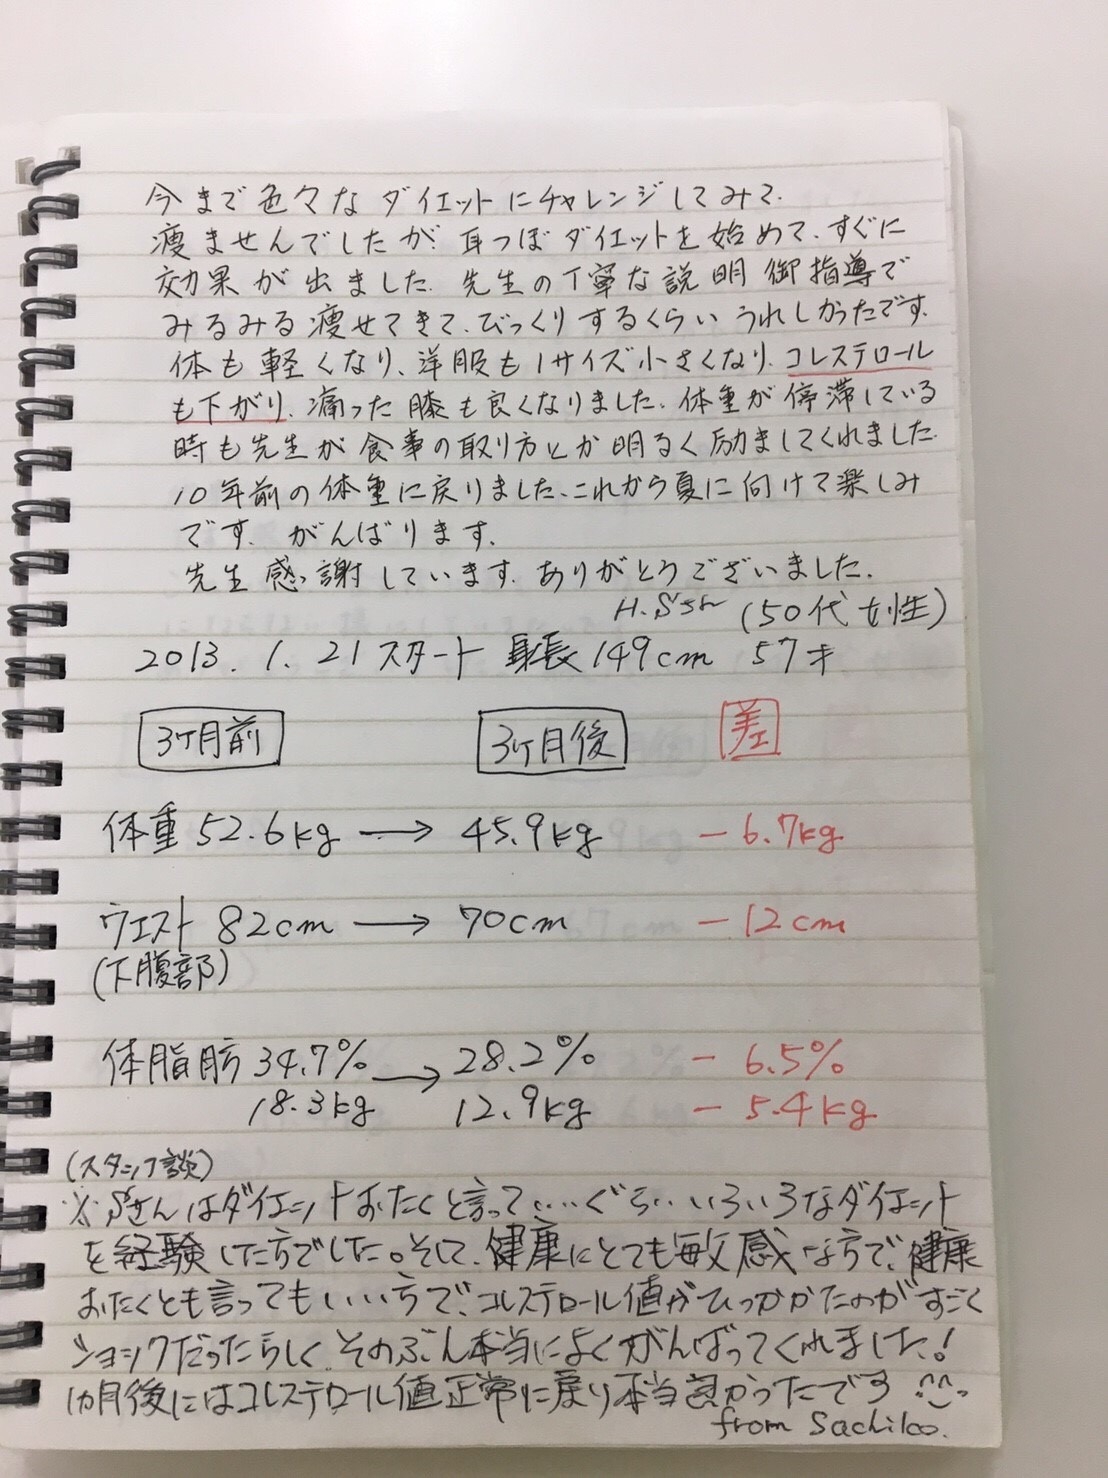 今まで色々なダイエットにチャレンジしてみて、
痩ませんでしたが 耳つぼダイエットを始めて、すぐに
効果が出ました。先生の丁寧な説明 御指導で
みるみる痩せてきて、びっくりするくらい うれしかったです。
体も軽くなり、洋服も1サイズ小さくなり、コレステロール
も下がり、痛った膝も良くなりました。体重が停滞している
時も先生が食事の取り方とか明るく励ましてくれました。
10年前の体重に戻りました。これから夏に向けて楽しみ
です。がんばります。
先生 感謝しています。ありがとうございました。
H. (50代女性)
2013. 1. 21 スタート 身長 149cm 57才
3ヶ月前 3ヶ月後 差
体重 52.6kg → 45.9kg -6.7kg
ウエスト 82cm → 70cm -12cm
(下腹部)
体脂肪 34.7% → 28.2% -6.5%
18.3kg 12.9kg -5.4kg
(スタッフ談)
※Sさんはダイエットおたくと言って・・・ぐらい いろいろなダイエット
を経験した方でした。そして、健康にとても敏感な方で、健康
おたくとも言ってもいい方で、コレステロール値がひっかかたのがすごく
ショックだったらしく、そのぶん本当によくがんばってくれました!
1ヵ月後にはコレステロール値正常に戻り本当良かったです ^^
from Sachiko.